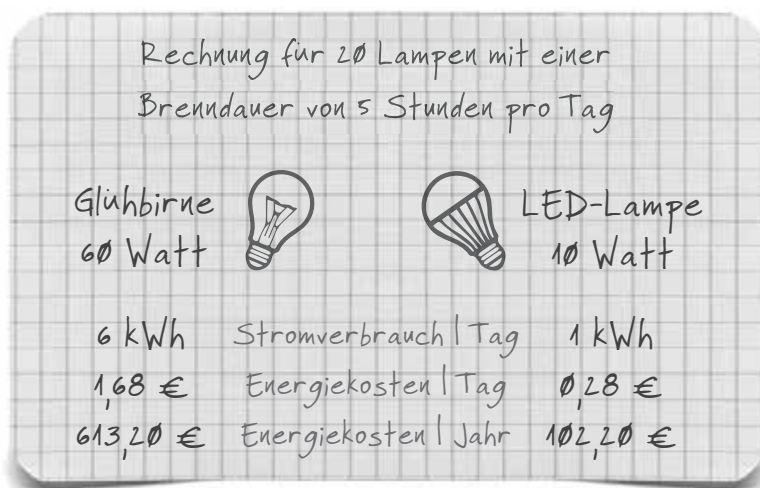 Rechnung für 20 Lampen mit einer
Brenndauer von 5 Stunden pro Tag
Glühbirne
60 Watt
LED-Lampe
10 Watt
6 kWh Stromverbrauch | Tag 1 kWh
1,68 € Energiekosten | Tag 0,28 €
613,20 € Energiekosten | Jahr 102,20 €